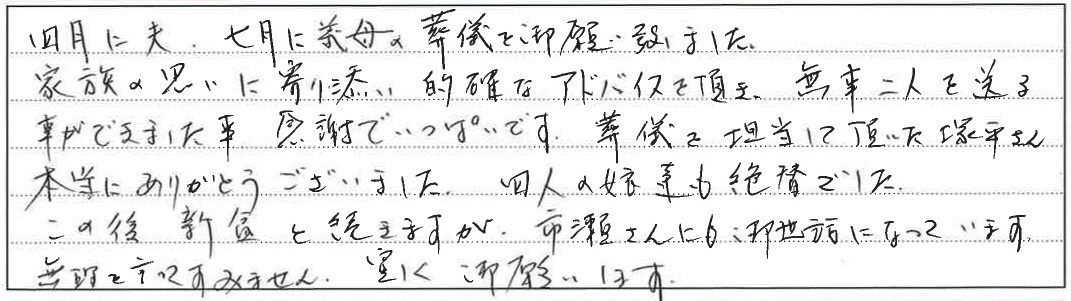 四月に夫、七月に義母の葬儀を御願い致しました。
家族の思いに寄り添い的確なアドバイスを頂き、無事二人を送る
事ができました事 感謝でいっぱいです。葬儀を担当して頂いた塚平さん
本当にありがとうございました。四人の娘達も絶賛でした。
この後 新盆と続きますが、市瀬さんにも御世話になっています。
無理を言ってすみません。宜しく御願いします。